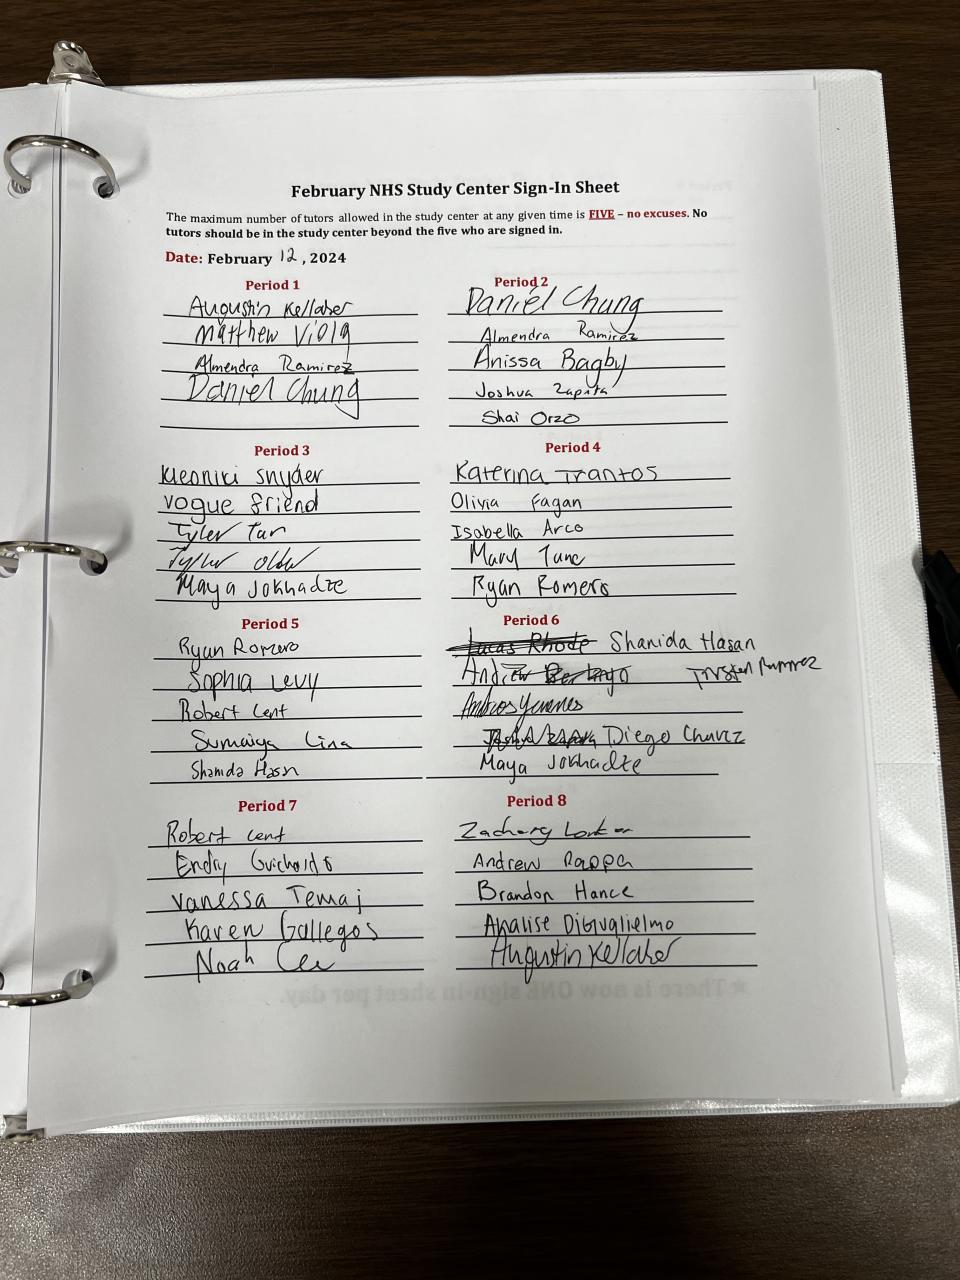 February NHS Study Center Sign-In Sheet
The maximum number of tutors allowed in the study center at any given time is FIVE – no excuses. No
tutors should be in the study center beyond the five who are signed in.
Date: February 12, 2024
Period 1
Augustin Kellaher
Matthew Viola
Almendra Ramirez
Daniel Chung
Period 2
Daniel Chung
Almendra Ramirez
Anissa Bagby
Joshua Zapata
Shai Orzo
Period 3
Kleoniki Snyder
Vogue Friend
Tyler
Tyler
Maya Jokhadze
Period 4
Katerina Trantos
Olivia Fagan
Isabella Arco
Mary
Ryan Romero
Period 5
Ryan Romero
Sophia Levy
Robert Cent
Sumaiya Lina
Shanida Hasn
Period 6
Lucas Rhode Shanida Hasan
Andrew Ramirez
Diego Chavez
Maya Jokhadze
Period 7
Robert Cent
Vanessa Temaj
Karen Gallegos
Noah
Period 8
Zachary
Andrew Pappa
Brandon Hance
Analise DiGuglielmo
Augustin Kellaher
★There is now ONE sign-in sheet per day.